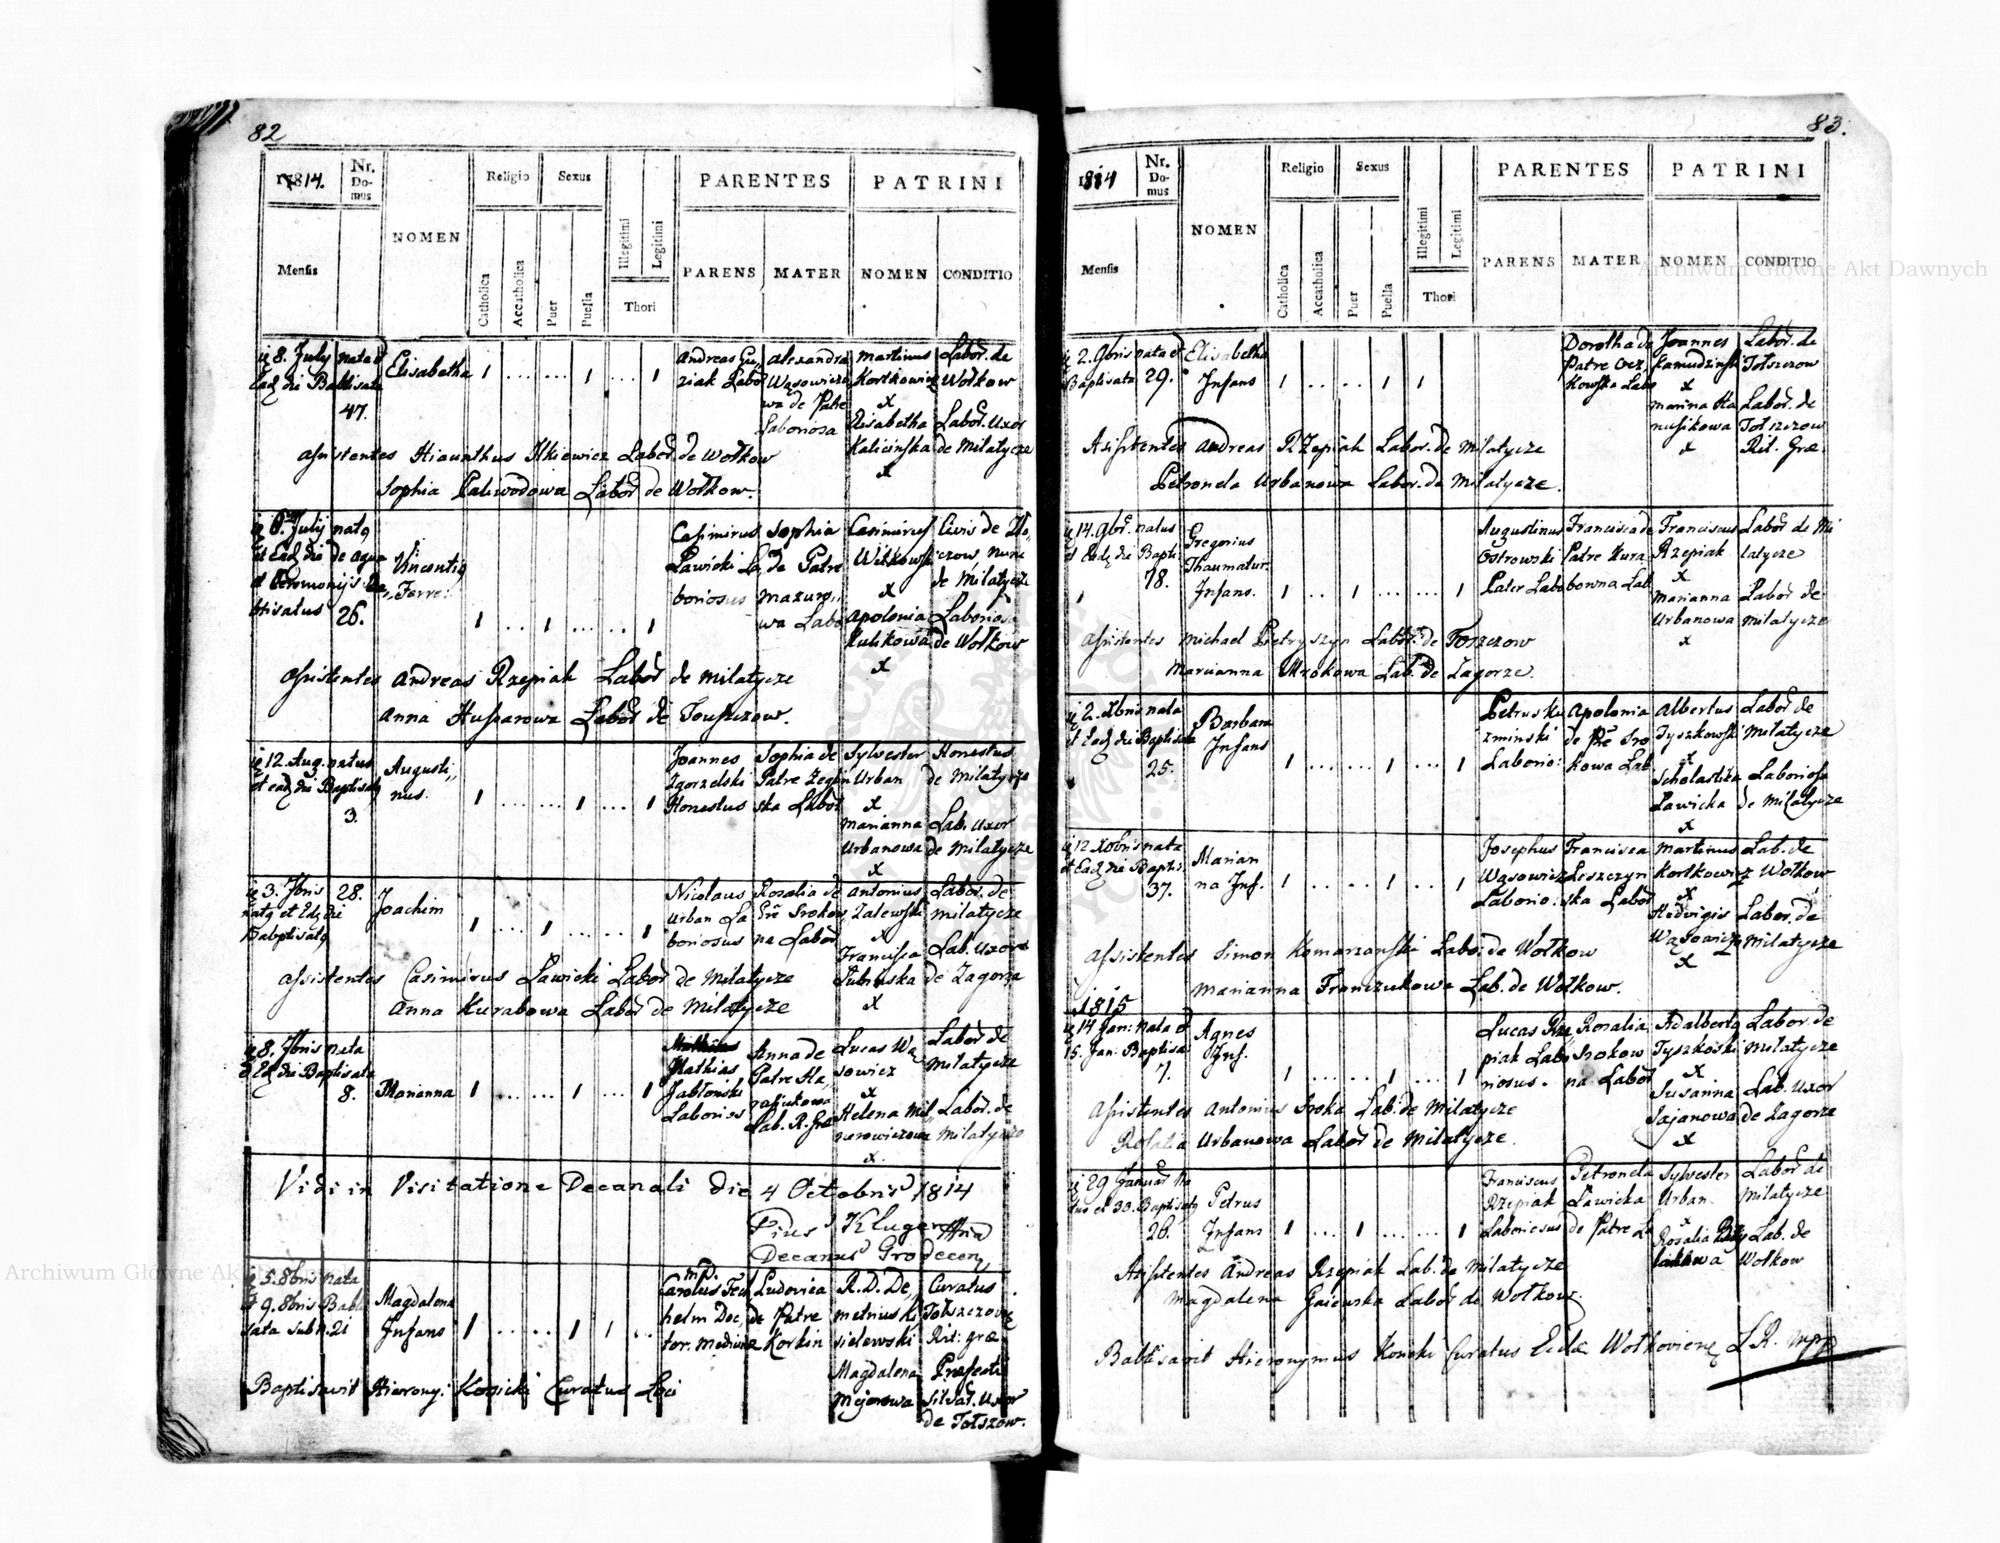 82
1814.
Nr. Domus
NOMEN
Religio
Sexus
PARENTES
PATRINI
Mensis
Catholica
Accatholica
Puer
Puella
Illegitimi
Legitimi
Thori
PARENS
MATER
NOMEN
CONDITIO
8. July nata et
Ead die Babtisata
47.
Elisabetha
1 ... .. 1 ... 1
Andreas Gu,
ziak Labo
Alexandra
Wąsowiczo
wa de Patre
Laboriosa
Martinus
Kortkowicz
x
Elisabetha
Kalicinska
x
Labor. de
Wołkow
Labor. Uxor
de Milatycze
assistentes Hiacinthus Ilkiewicz Labor. de Wołkow
Sophia Paliwodowa Labor de Wołkow.
July natq
et Eadq die de aqua
et Ceremonijs Ba,,
btisatus 26.
Vincentiq
Ferre:
1 ... 1 ... .. 1
Casimirus
Ławicki La,
boriosus
Sophia
de Patre
Mazuro,,
wa Labo
Casimirus
Witkowsk
x
Apolonia
Kulikowa
x
Civis de
czow nunc
de Milatycze
Laboriosa
de Wołkow
assistentes Andreas Rzepiak Labor de Milatycze
Anna Husarowa Labor de Touszczow.
12. Aug. natus
et eadq die Baptisatq
3.
Augusti,,
nus.
1 ... ... 1 ... 1
Joannes
Zgorzelski
Honestus
Sophia de
Patre Zegliń
ska Labor
Sylvester
Urban
x
Marianna
Urbanowa
x
Honestus
de Milatycze
Lab. Uxor
de Milatycze
3. 7bris 28.
natq et Eadq die
Babptisatq
Joachim
1 ... 1 ... ... 1
Nicolaus
Urban La
boriosus
Rosalia de
Prē Srokow
na Labor
Antonius
Zalewski
x
Francisca
x
Labor. de
Milatycze
Lab. Uxor
de Zagorza
assistentes Casimirus Lawicki Labor de Milatycze
Anna Kurabowa Labor de Milatycze
8. 7bris nata
Eadq die Baptisata
8.
Marianna
1 ... ... 1 ... 1
Mathias
Jabłoński
Laborios
Anna de
Patre Ha,
Lab. R. Græ
Lucas Wą
sowicz
x
Helena Mil,,
x.
Labor de
Milatycze
Labor. de
Milatycze
Vidi in Visitatione Decanali die 4 Octobris 1814
Pius Kluger
Decanus Grodecen,
mp.
5. 8bris nata
9. 8bris Babti
sata sub N. 21
Magdalena
Infans
1 ... ... 1 1 ..
Carolus
helm Doc,
tor. medicinæ
Ludovica
de Patre
Korkin
R. D. De,,
metrius Ki
sielewski
Magdalena
Majorowa
Curatus
Tołszczoviæ
Rit: græ
Præfecti
Silvat. Uxor
de Tołszow.
Baptisavit Hieronyi Konicki Curatus Loci
83.
1814
Nr. Domus
NOMEN
Religio
Sexus
PARENTES
PATRINI
Mensis
Catholica
Accatholica
Puer
Puella
Illegitimi
Legitimi
Thori
PARENS
MATER
NOMEN
CONDITIO
2. 9bris nata et
Baptisata 29.
Elisabetha
Infans
1 ... .. 1 1
Dorotha de
Patre
kowska Labo
Joannes
Kamudzinsk
x
Marina Ha
nusikowa
x
Labor. de
Tołszczow
Labor. de
Tołszczow
Rit. Græ.
Assistentes Andreas Rzepiak Labor. de Milatycze
Petronela Urbanowa Labor. de Milatycze.
14. 9br. natus
et Eadq die Bapti
78.
Gregorius
Thaumatur.
Infans.
1 .. 1 ... ... 1
Augustinus
Ostrowski
Pater Labo
Francisca de
Patre Kura
bowna Lab.
Franciscus
Rzepiak
x
Marianna
Urbanowa
x
Labor de Mi
latycze
Labor de
Milatycze
assistentes Michael Pietryszyn Labor. de Toszczow
Marianna Mrokowa Lab. de Zagorze.
2. Xbris nata
et Eadq die Baptisata
25.
Barbara
Infans
1 ... ... 1 ... 1
Petrus Ku
zminski
Laborio:
Apolonia
de Prē Sro
kowa Lab
Albertus
Tyszkowski
x
Scholastika
Lawicka
x
Labor de
Milatycze
Laboriosa
de Milatycze
12 Xobris nata
et Eadq die Bapti:
37.
Marian
na Inf.
1 ... ... 1 ... 1
Josephus
Wąsowicz
Laborio.
Francisca
Leszczyn
ska Labor
Martinus
Kortkowicz
x
Hedvigis
Wąsowicz
x
Lab. de
Wołkow
Labor. de
Milatycze
assistentes Simon Komarzanski Labo: de Wołkow
Marianna Franczukowa Lab. de Wołkow.
1815
14 Jan: nata et
15. Jan: Baptisa:
7.
Agnes
Inf.
1 ... ... 1 ... 1
Lucas Rze
piak Labo
riosus.
Rosalia
Srokow
na Labor
Adalbertq
Tyszkoski
x
Susanna
Sajanowa
x
Labor. de
Milatycze
Lab. Uxor
de Zagorze
Assistentes Antonius Sroka Lab. de Milatycze
Rosalia Urbanowa Labor de Milatycze.
29 Januar na
tus et 30. Baptisatq
26.
Petrus
Infans
1 ... 1 ... ... 1
Franciscus
Rzepiak
Laboriosus
Petronela
Lawicka
de Patre La
Sylvester
Urban
x
Rosalia
Labor de
Milatycze
Lab. de
Wołkow
Assistentes Andreas Rzepiak Lab. de Milatycze
Magdalena Gaiewska Labor de Wołkow.
Babtisavit Hieronymus Konicki Curatus Eccliæ Wołkovienę L.R. mpp